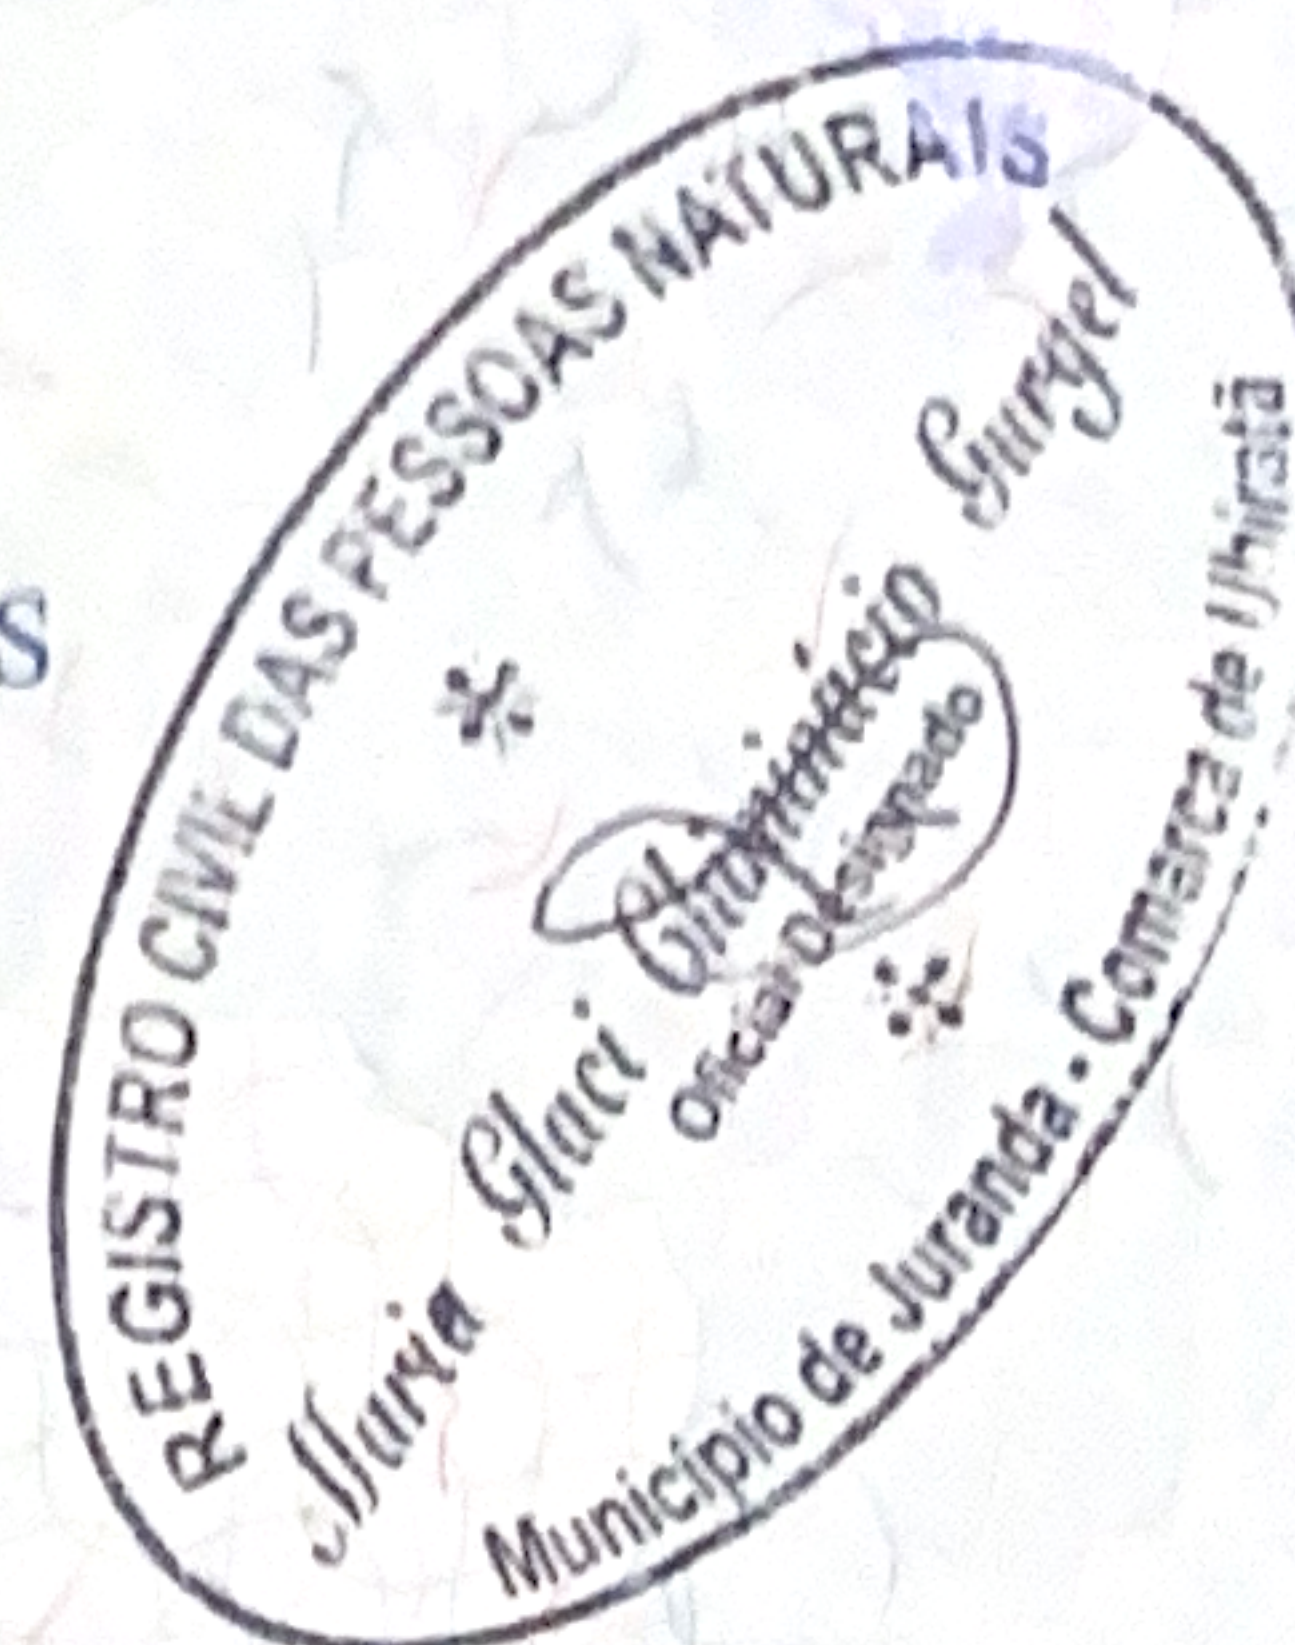 S
REGISTRO CIVIL DAS PESSOAS NATURAIS
Maria Glaci Gurgel
Oficial Designado
Município de Juranda - Comarca de Ubiratã